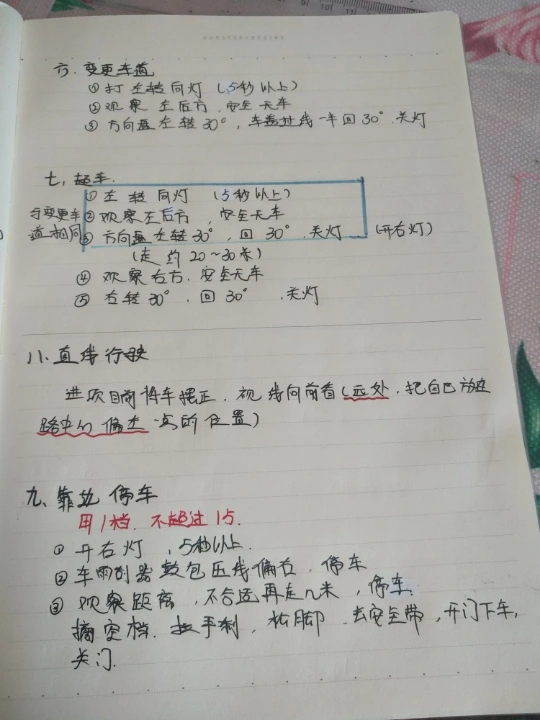 六、变更车道
① 打左转向灯（5秒以上）
② 观察左后方，安全无车
③ 方向盘左转30°，车轮过线一半回30°.关灯
七、超车.
① 左转向灯（5秒以上）
与变更车道相同
② 观察左后方，安全无车
③ 方向盘左转30°，回30°.关灯（开右灯）
（走约20~30米）
④ 观察右方.安全无车
⑤ 右转30°.回30°.关灯
八、直线行驶
进项目前将车摆正.视线向前看（远处，把自己放在
路中间偏左一点的位置）
九、靠边停车
用1档.不超过15.
① 开右灯，5秒以上.
② 车雨刮器鼓包压线偏右，停车
③ 观察距离，不合适再走几米，停车.
摘空档.拉手刹，松脚.去安全带，开门下车，
关门.